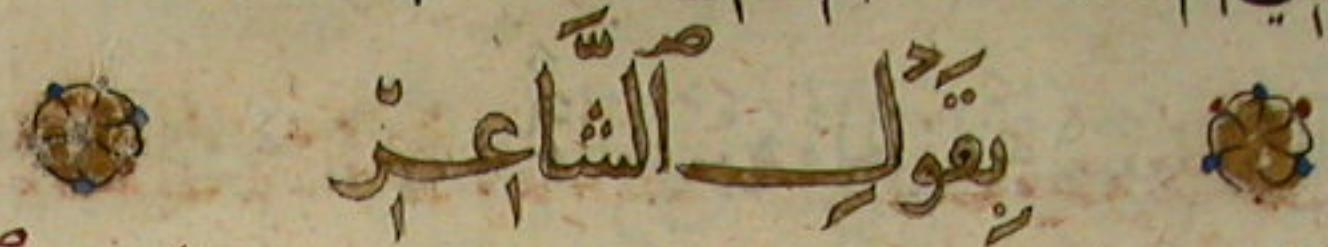 بِقَوْلِ ٱلشَّاعِرِ